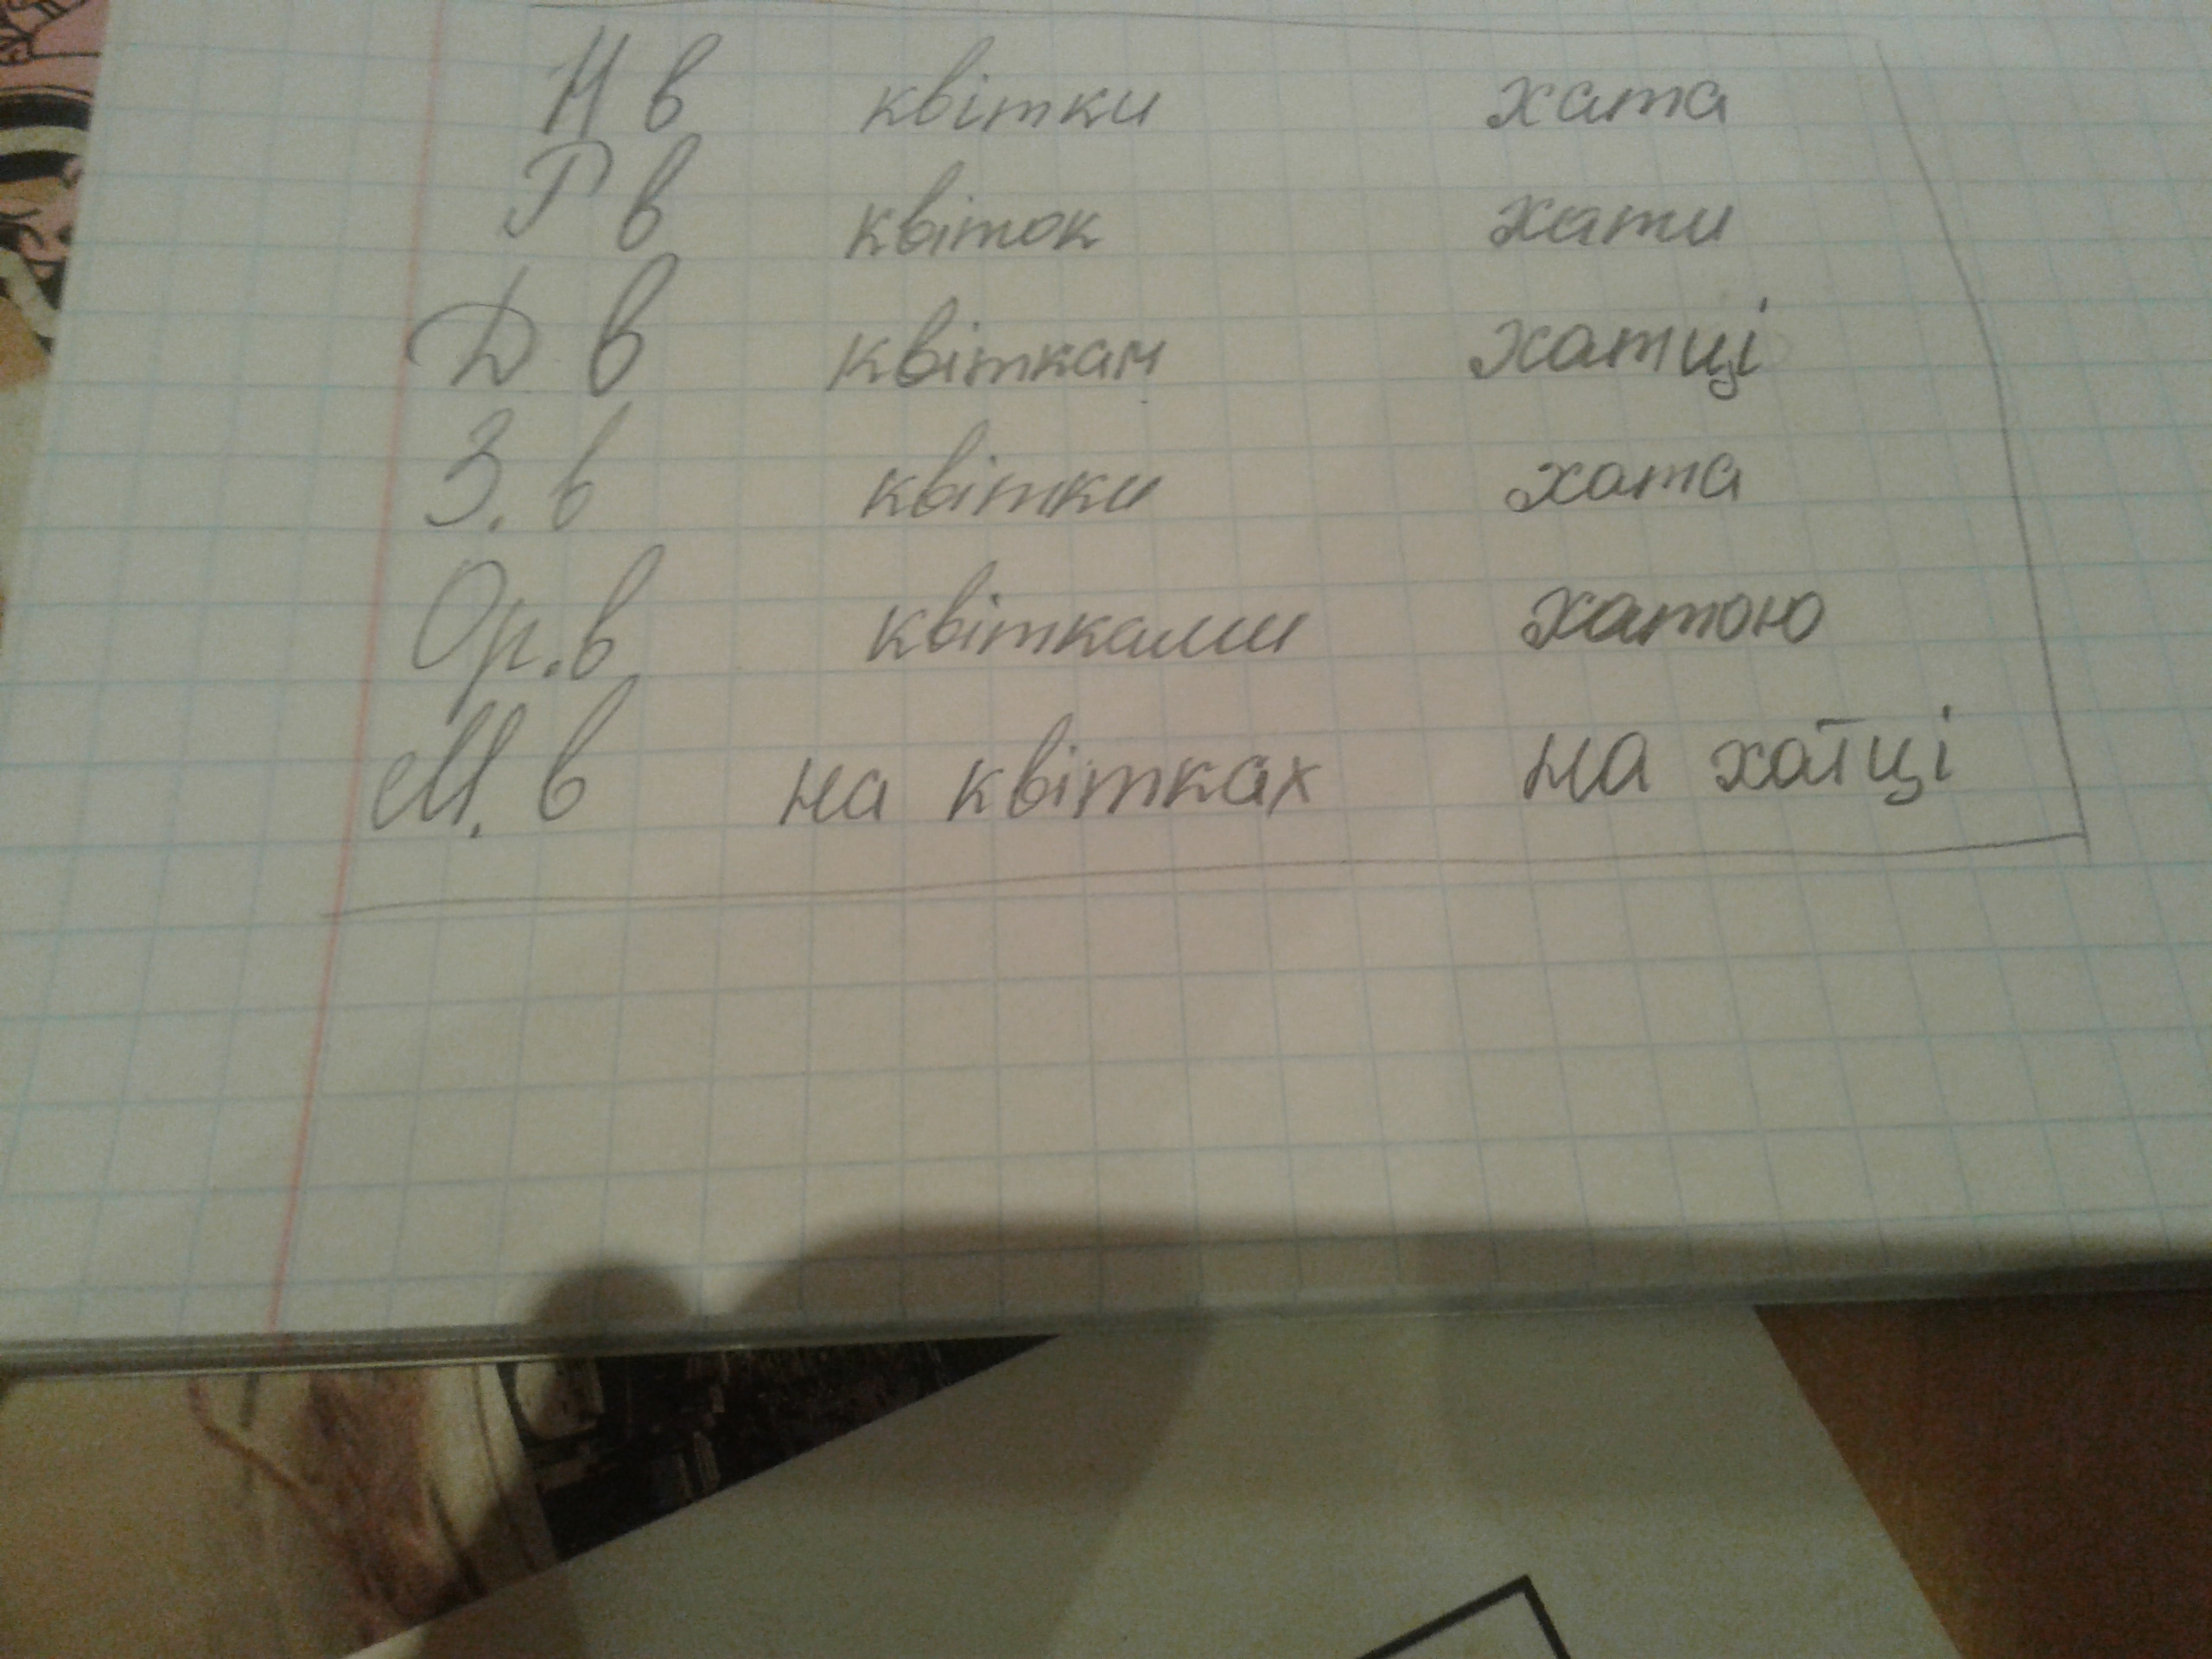 Н в квітки хата
Р в квіток хати
Д в квіткам хатці
З. в квітки хата
Ор. в квітками хатою
М. в на квітках на хатці